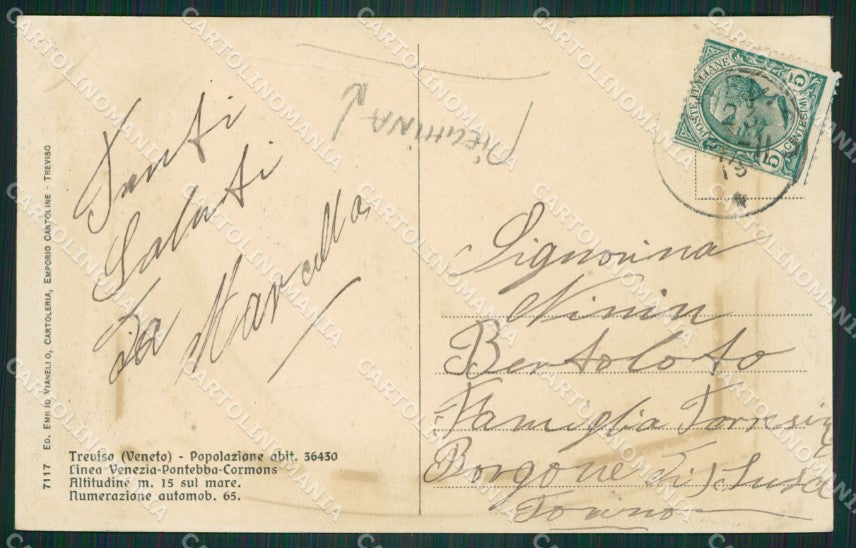 Tanti
Saluti
Zia Marcella
PIEGHINA
Signorina
Ninin
Bertoloto
Famiglia Torresin
Borgone di Susa
Torino
POSTE ITALIANE
CENTESIMI 5
5
23
11
13
7117 ED. EMILIO VIANELLO, CARTOLERIA, EMPORIO CARTOLINE - TREVISO
Treviso (Veneto) - Popolazione abit. 36430
Linea Venezia-Pontebba-Cormons
Altitudine m. 15 sul mare.
Numerazione automob. 65.
CARTOLINOMANIA